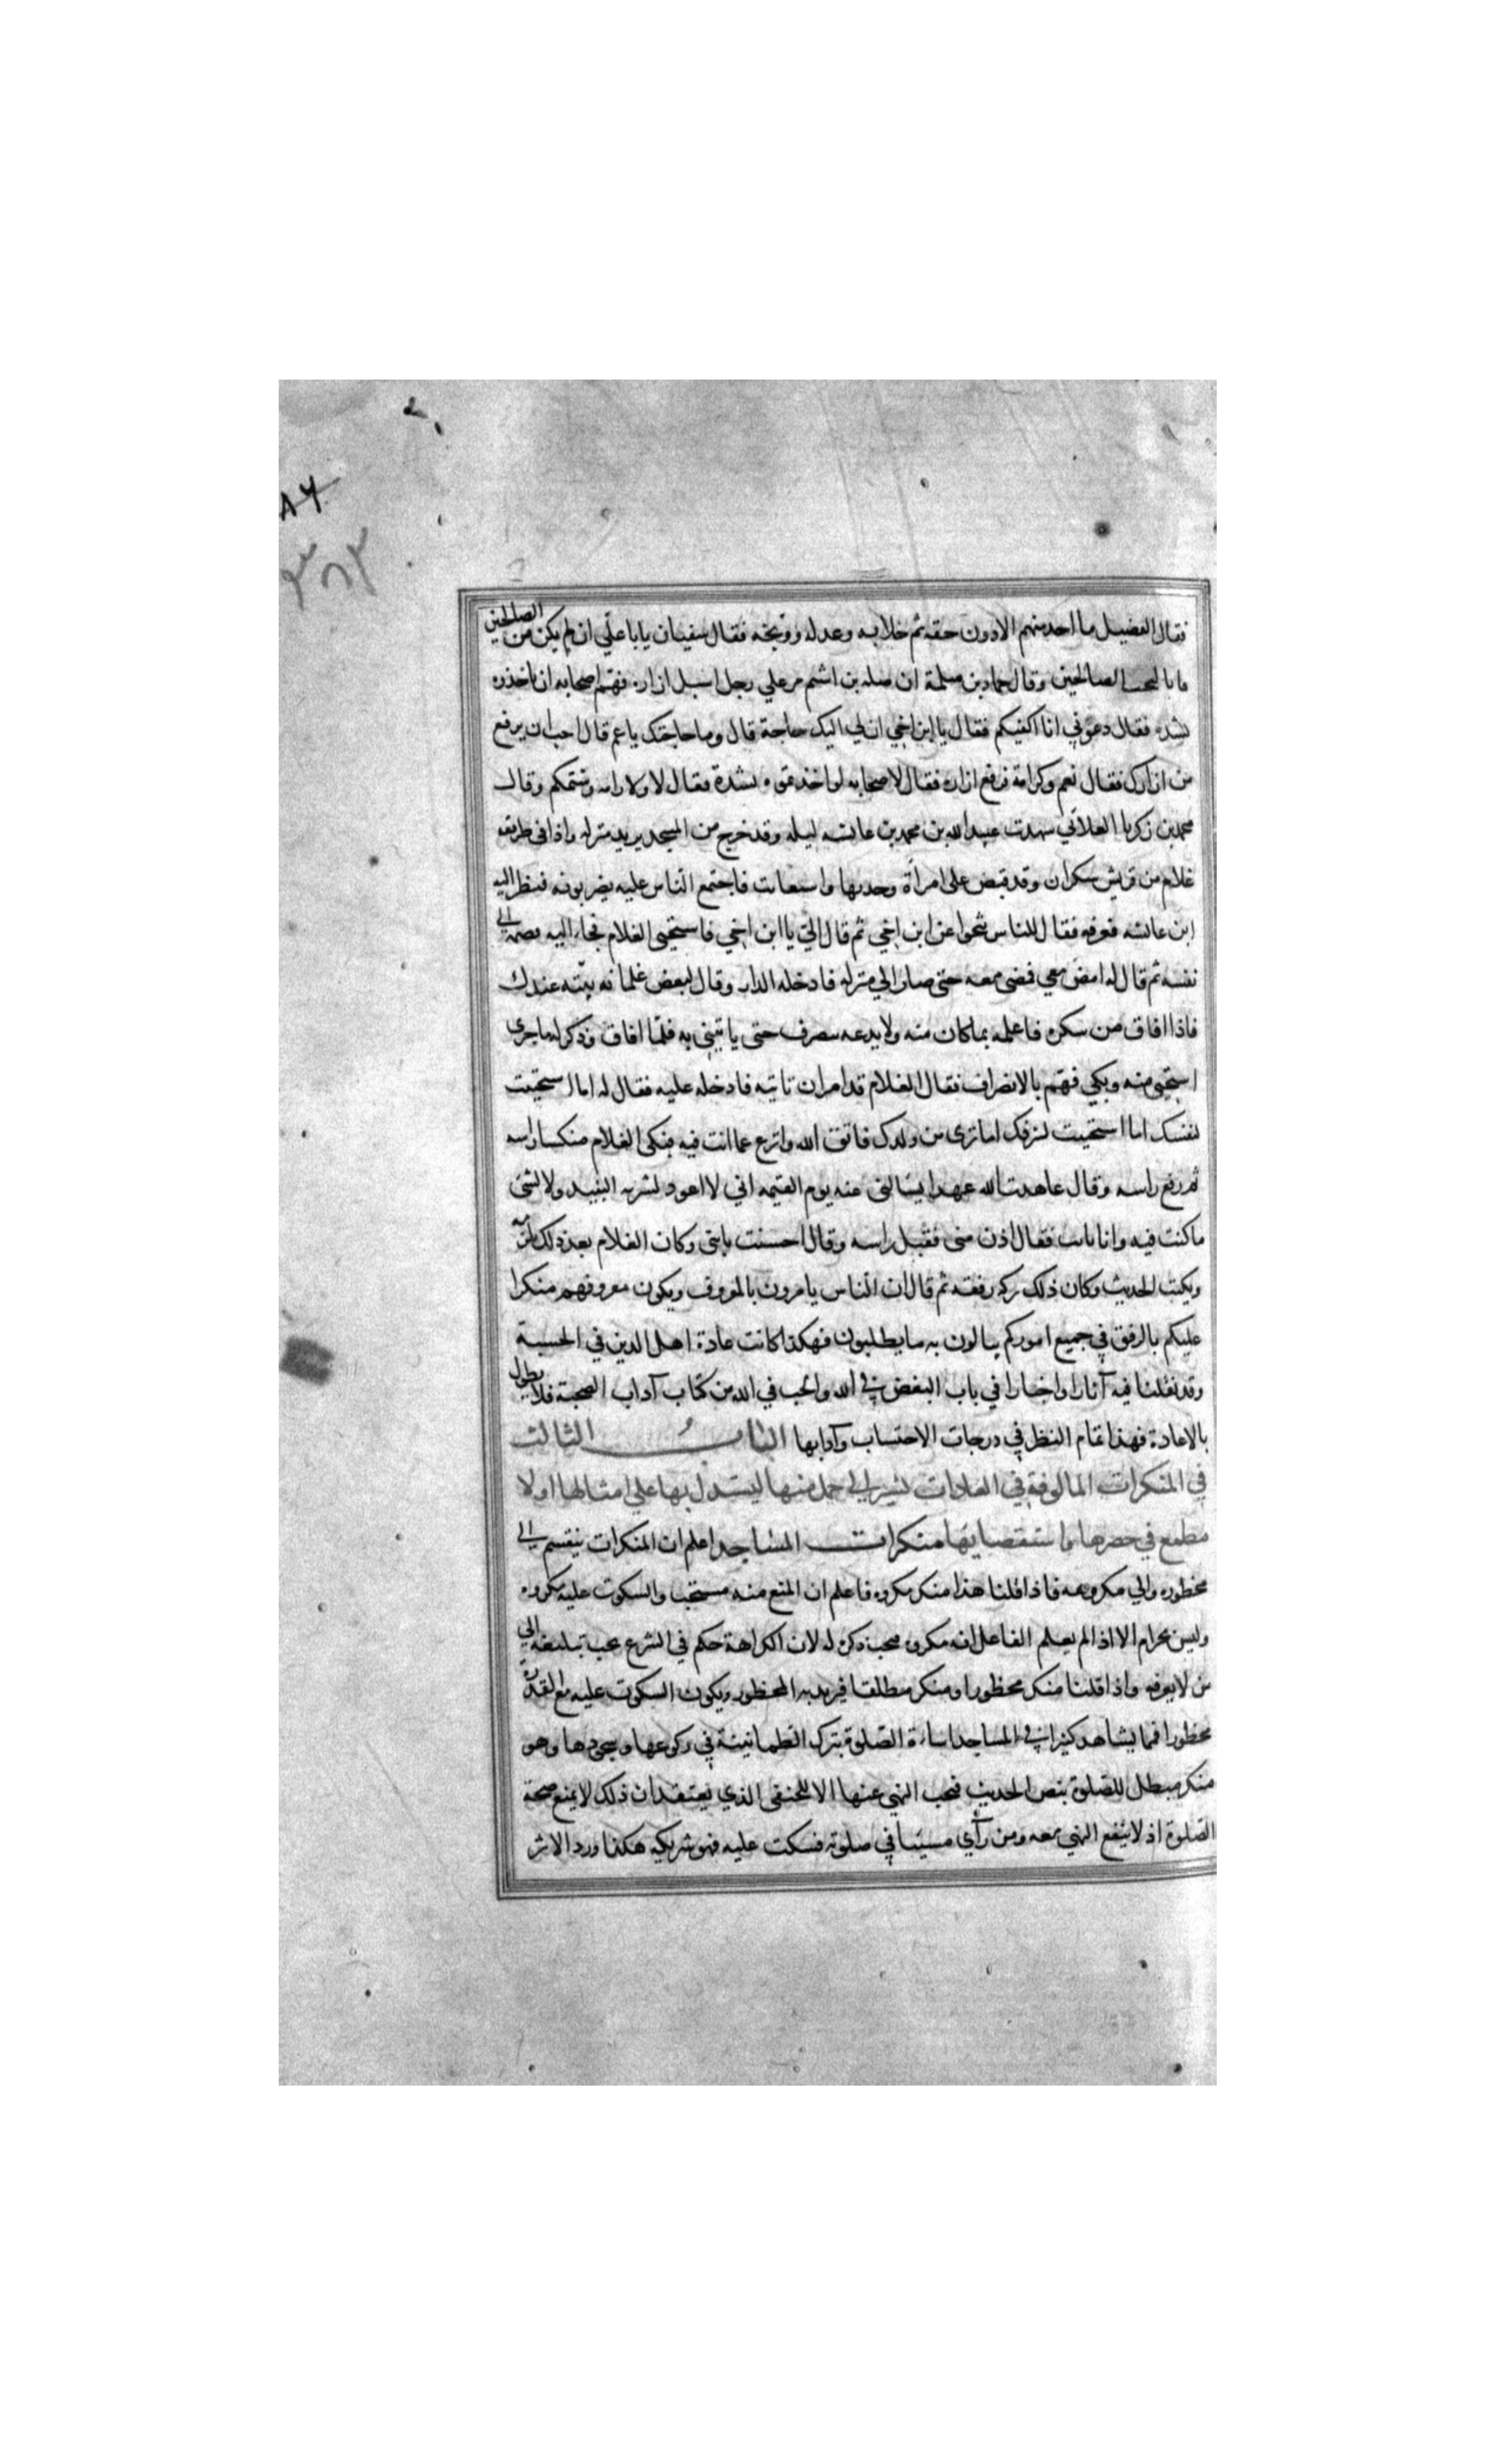 ٨٦
٣٨٣
فقال الفضيل ما اخذ منهم الا دون حقه ثم خلا به وعدله ووبخه فقال سفيان يابا علي ان لم يكن من الصالحين
فانا لنحب الصالحين وقال حماد بن سلمة ان صله بن اشيم مر علي رجل اسبل ازاره فهم اصحابه ان ياخذوه
بشده فقال دعوني انا اكفيكم فقال يا ابن اخي ان لي اليك حاجة قال وما حاجتك يا عم قال احب ان يرفع
من ازارك فقال نعم وكرامة فرفع ازاره فقال لاصحابه لو اخذتموه بشدة فقال لا ولا كرامه وشتمكم وقال
محمد بن زكريا الغلاني شهدت عبيد الله بن محمد بن عائشه ليله وقد خرج من المسجد يريد منزله واذا في طريقه
غلام من قريش سكران وقد قبض على امرأة وجذبها واستغاثت فاجتمع الناس عليه يضربونه فنظر اليه
ابن عائشه فعرفه فقال للناس تنحوا عن ابن اخي ثم قال اليّ يا ابن اخي فاستحيى الغلام فجاء اليه فضمه الي
نفسه ثم قال له امض معي فمضى معه حتى صار الي منزله فادخله الدار وقال لبعض غلمانه بيّته عندك
فاذا افاق من سكره فاعلمه بما كان منه ولا يدعه ينصرف حتى ياتيني به فلمّا افاق وذكر له ما جرى
استحيى منه وبكي فهم بالانصراف فقال الغلام قد امر ان تاتيه فادخله عليه فقال له اما استحييت
لنفسك اما استحييت لشرفك اما ترى من ولدك فاتق الله وانزع عما انت فيه فبكى الغلام منكسا راسه
ثم رفع راسه وقال عاهدت الله عهدا يسالني عنه يوم القيمه اني لا اعود لشربه النبيذ ولا لشئ
ما كنت فيه وانا تايب فقال اذن منى فقبل راسه وقال احسنت يا بنى وكان الغلام بعد ذلك يلزمه
ويكتب الحديث وكان ذلك بركة رفقه ثم قال ان الناس يامرون بالمعروف ويكون معروفهم منكرا
عليكم بالرفق في جميع اموركم ينالون به ما يطلبون فهكذا كانت عادة اهل الدين في الحسبة
وقد نقلنا فيه آثارا واخبارا في باب البغض في الله والحب في الله من كتاب آداب الصحبة فلا يطول
بالاعادة فهذا تمام النظر في درجات الاحتساب وآدابها الباب الثالث
في المنكرات المالوفة في العادات نشير الي جمل منها ليستدل بها علي امثالها اولا
مطمع في حصرها واستقصايها منكرات المساجد اعلم ان المنكرات ينقسم الي
محظوره والي مكروهه فاذا قلنا هذا منكر مكروه فاعلم ان المنع منه مستحب والسكوت عليه مكروه
وليس بحرام الا اذا لم يعلم الفاعل انه مكروه فيجب ذكره له لان الكراهة حكم في الشرع يجب تبليغه الي
من لا يعرفه واذا قلنا منكر محظورا ومنكر مطلقا فيريد به المحظور ويكون السكوت عليه مع القدرة
محظورا فمما يشاهد كثيرا في المساجد اساءة الصلوة بترك الطمانينة في ركوعها وسجودها وهو
منكر مبطل للصلوة بنص الحديث فيجب النهي عنها الا للحنفى الذي يعتقد ان ذلك لا يمنع صحة
الصلوة اذ لا ينفع النهي معه ومن رأي مسيئا في صلوته فسكت عليه فهو شريكه هكذا ورد الاثر